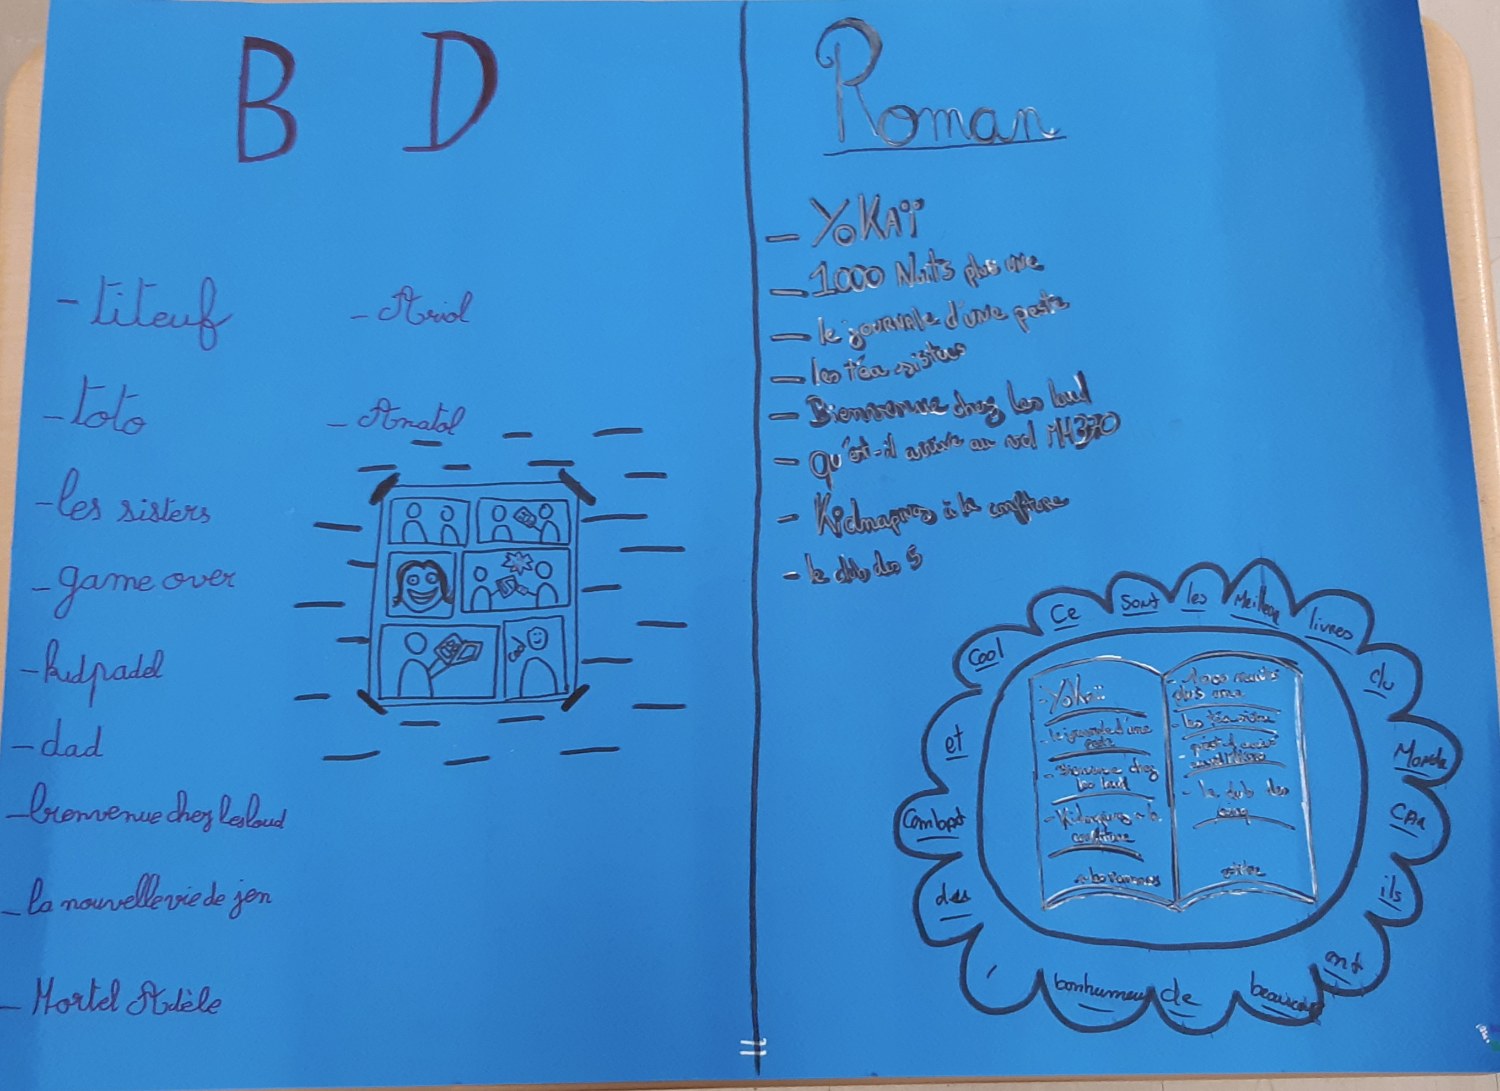 B D
- titeuf
- toto
- les sisters
- game over
- kidpadel
- dad
- bienvenue chez les loud
- la nouvelle vie de jen
- Mortel Adèle
- Ariol
- Anatol
Roman
- YOKAÏ
- 1000 Nuits plus une
- le journale d'une peste
- les téa sisters
- Bienvenue chez les loud
- Qu'est-il arrivé au vol MH370
- Kidnaping à la confiture
- le club des 5
Ce sont les Meilleur livres du Monde CAR ils ont beaucoup de bonhumeur, des Combat et Cool
- YoKaï
- le journale d'une
peste
- Bienvenue chez
les loud
- Kidnaping à la
confiture
- 1000 nuits
plus une
- les téa sisters
- le club des
cinq